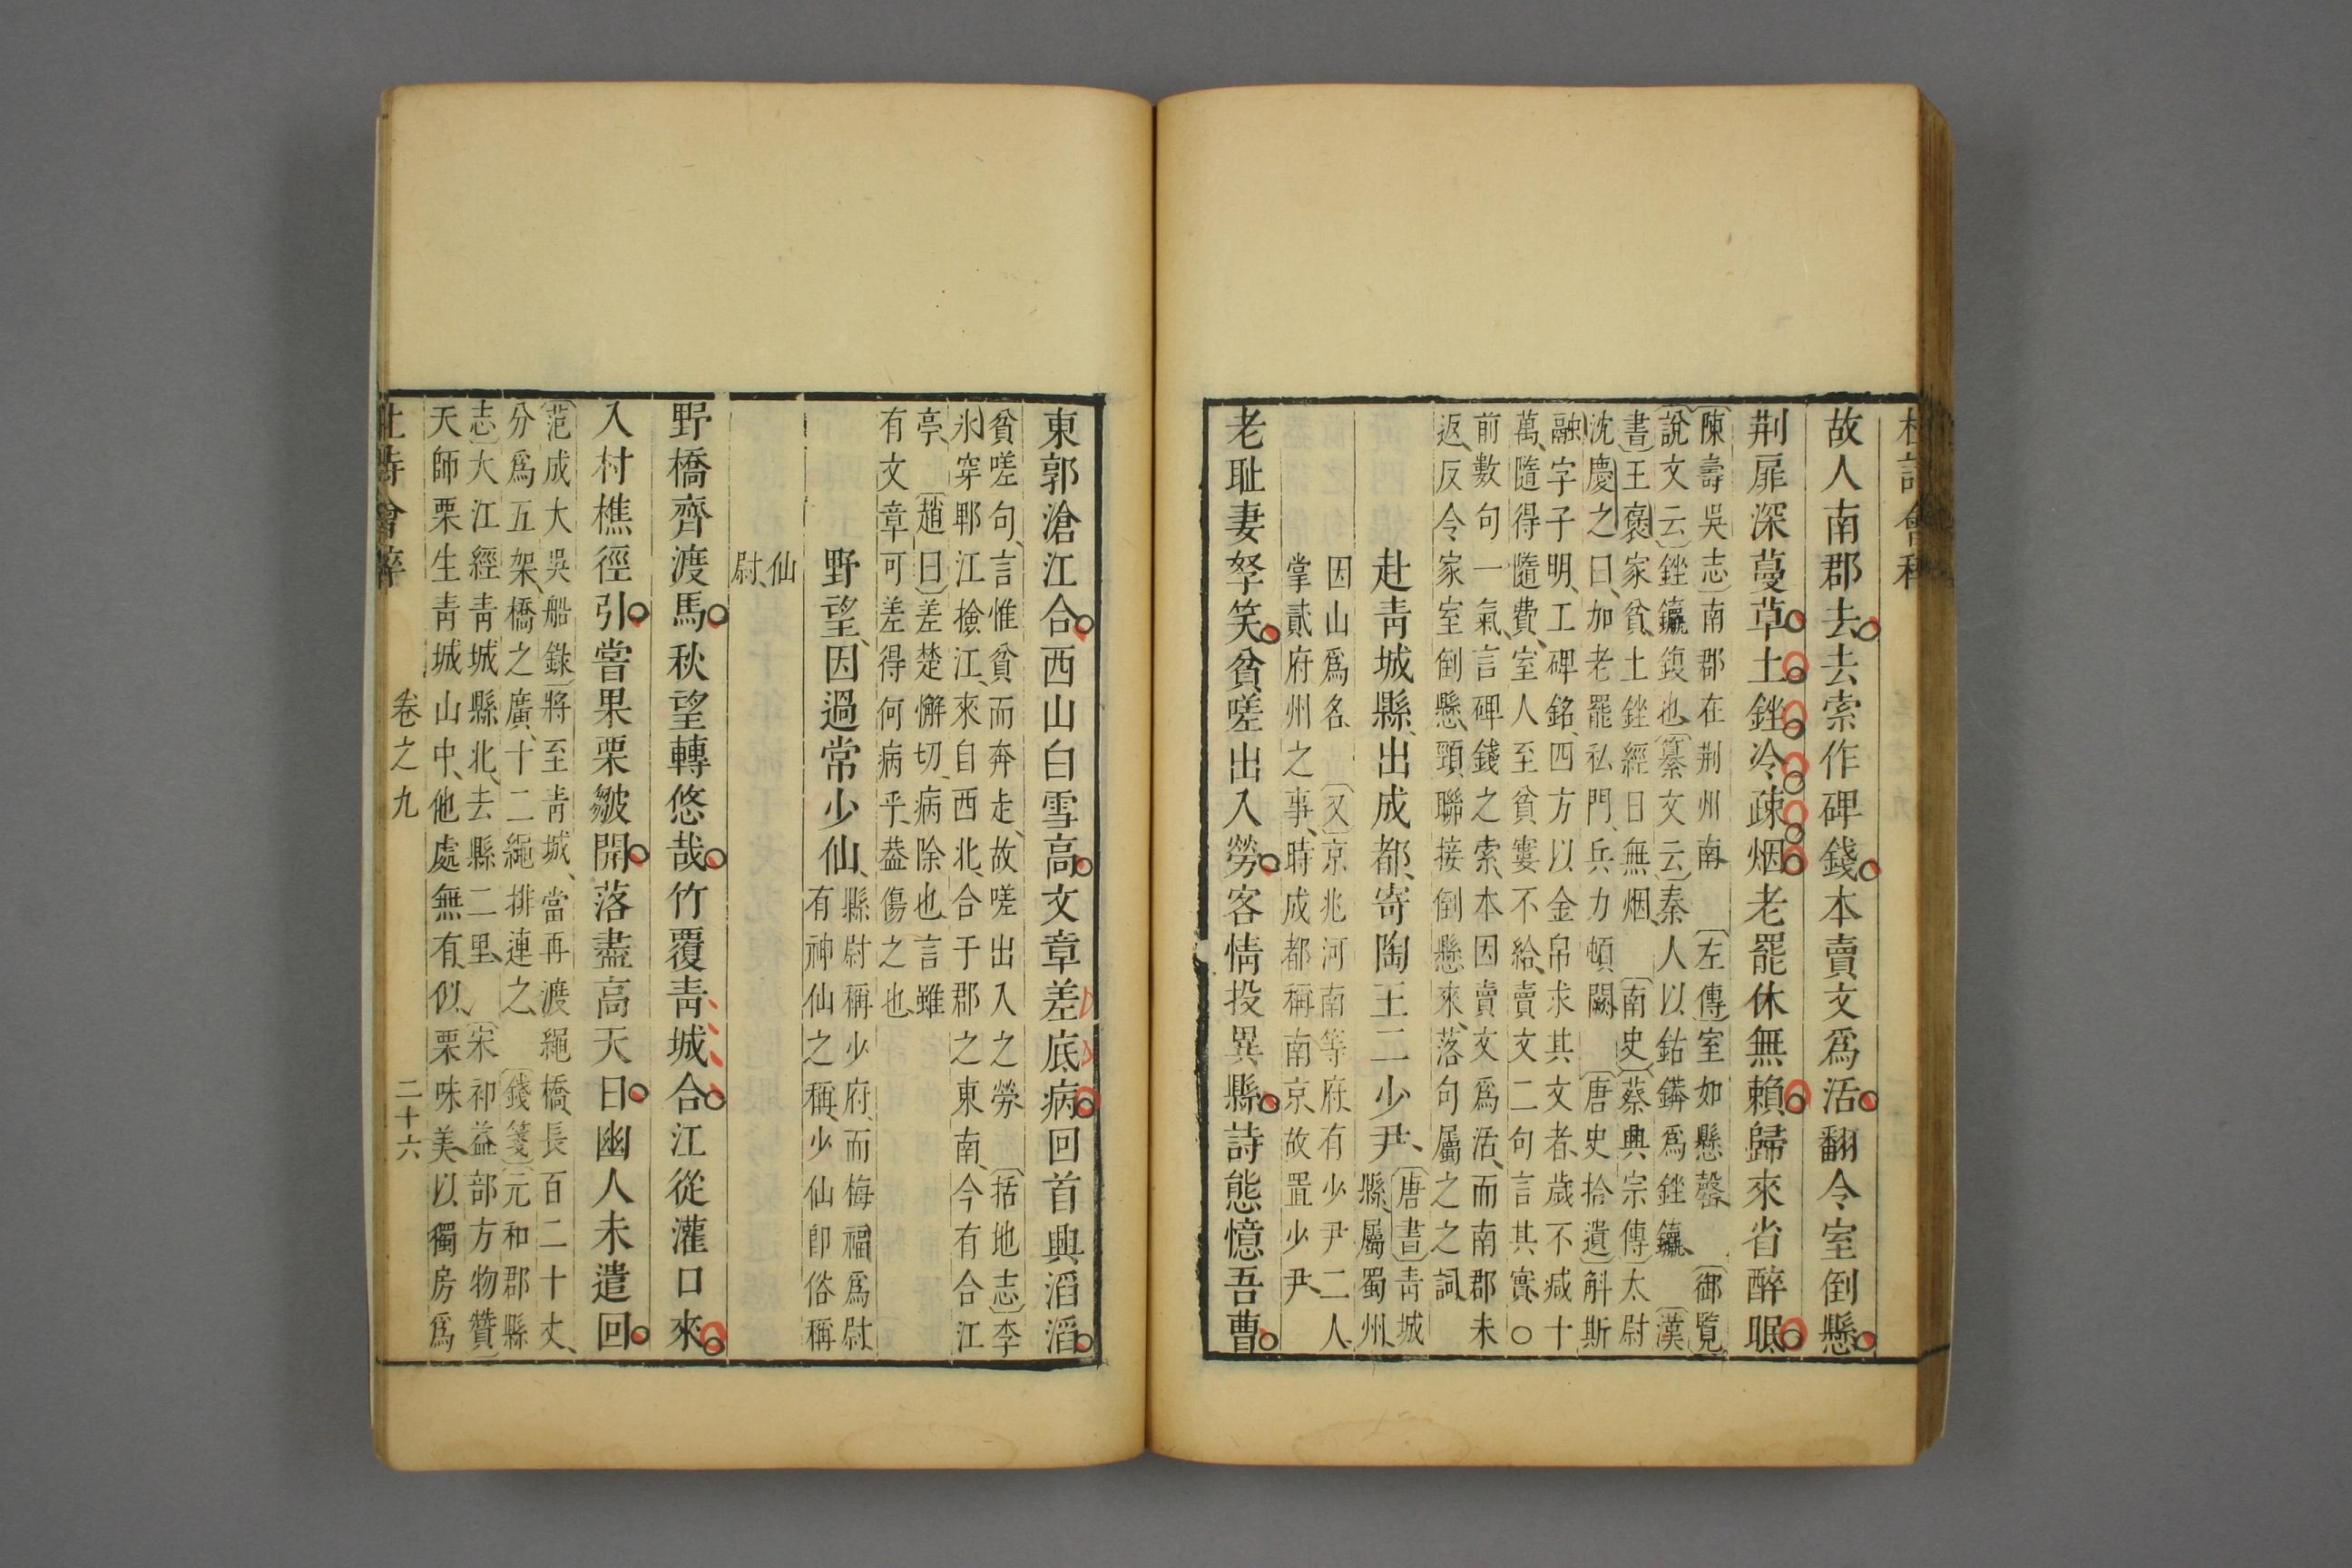 故人南郡去去索作碑錢本賣文爲活翻令室倒懸
荆扉深蔓草土銼冷疎烟老罷休無賴歸來省醉眠
陳壽吳志南郡在荆州南 左傳室如懸罄 御覧
說文云銼鑹鍑也纂文云秦人以鈷鏻爲銼鑹 漢
書王褒家貧土銼經日無烟 南史蔡興宗傳太尉
沈慶之曰加老罷私門兵力頓闕 唐史拾遺斛斯
融字子明工碑銘四方以金帛求其文者歲不减十
萬隨得隨費室人至貧窶不給賣文二句言其實○
前數句一氣言碑錢之索本因賣文爲活而南郡未
返反令家室倒懸頸聯接倒懸來落句屬之之詞
赴青城縣出成都寄陶王二少尹
唐書青城
縣屬蜀州
因山爲名 又京兆河南等府有少尹二人
掌貳府州之事時成都稱南京故置少尹
老耻妻孥笑貧嗟出入勞客情投異縣詩態憶吾曹
東郭滄江合西山白雪高文章差底病回首興滔滔
貧嗟句言惟貧而奔走故嗟出入之勞 括地志李
氷穿郫江撿江來自西北合于郡之東南今有合江
亭 趙曰差楚懈切病除也言雖
有文章可差得何病乎葢傷之也
野望因過常少仙
縣尉稱少府而梅福爲尉
有神仙之稱少仙卽俗稱
仙
尉
野橋齊渡馬秋望轉悠哉竹覆青城合江從灌口來
入村樵徑引嘗果栗皺開落盡高天日幽人未遣回
范成大吳船錄將至青城當再渡繩橋長百二十丈
分爲五架橋之廣十二繩排連之 錢箋元和郡縣
志大江經青城縣北去縣二里 宋祁益部方物贊
天師栗生青城山中他處無有似栗味美以獨房爲
卷之九 二十六